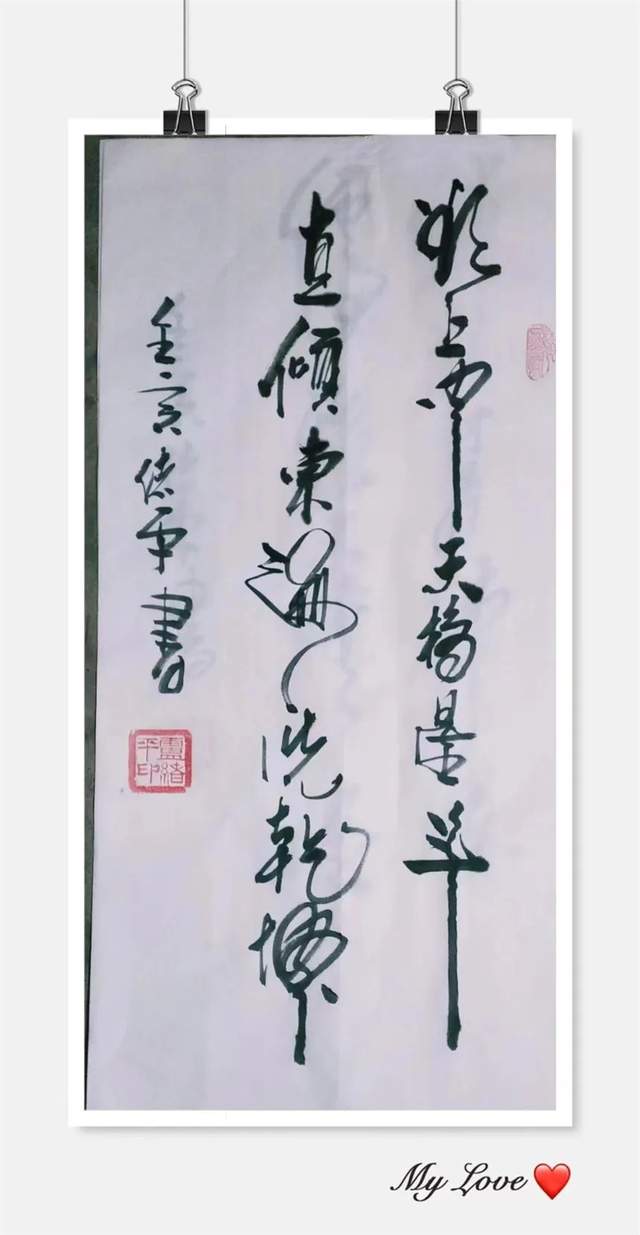 欲上天摘星斗
直傾東海洗乾坤
壬寅绪平書
盧緒平印
My Love ❤️